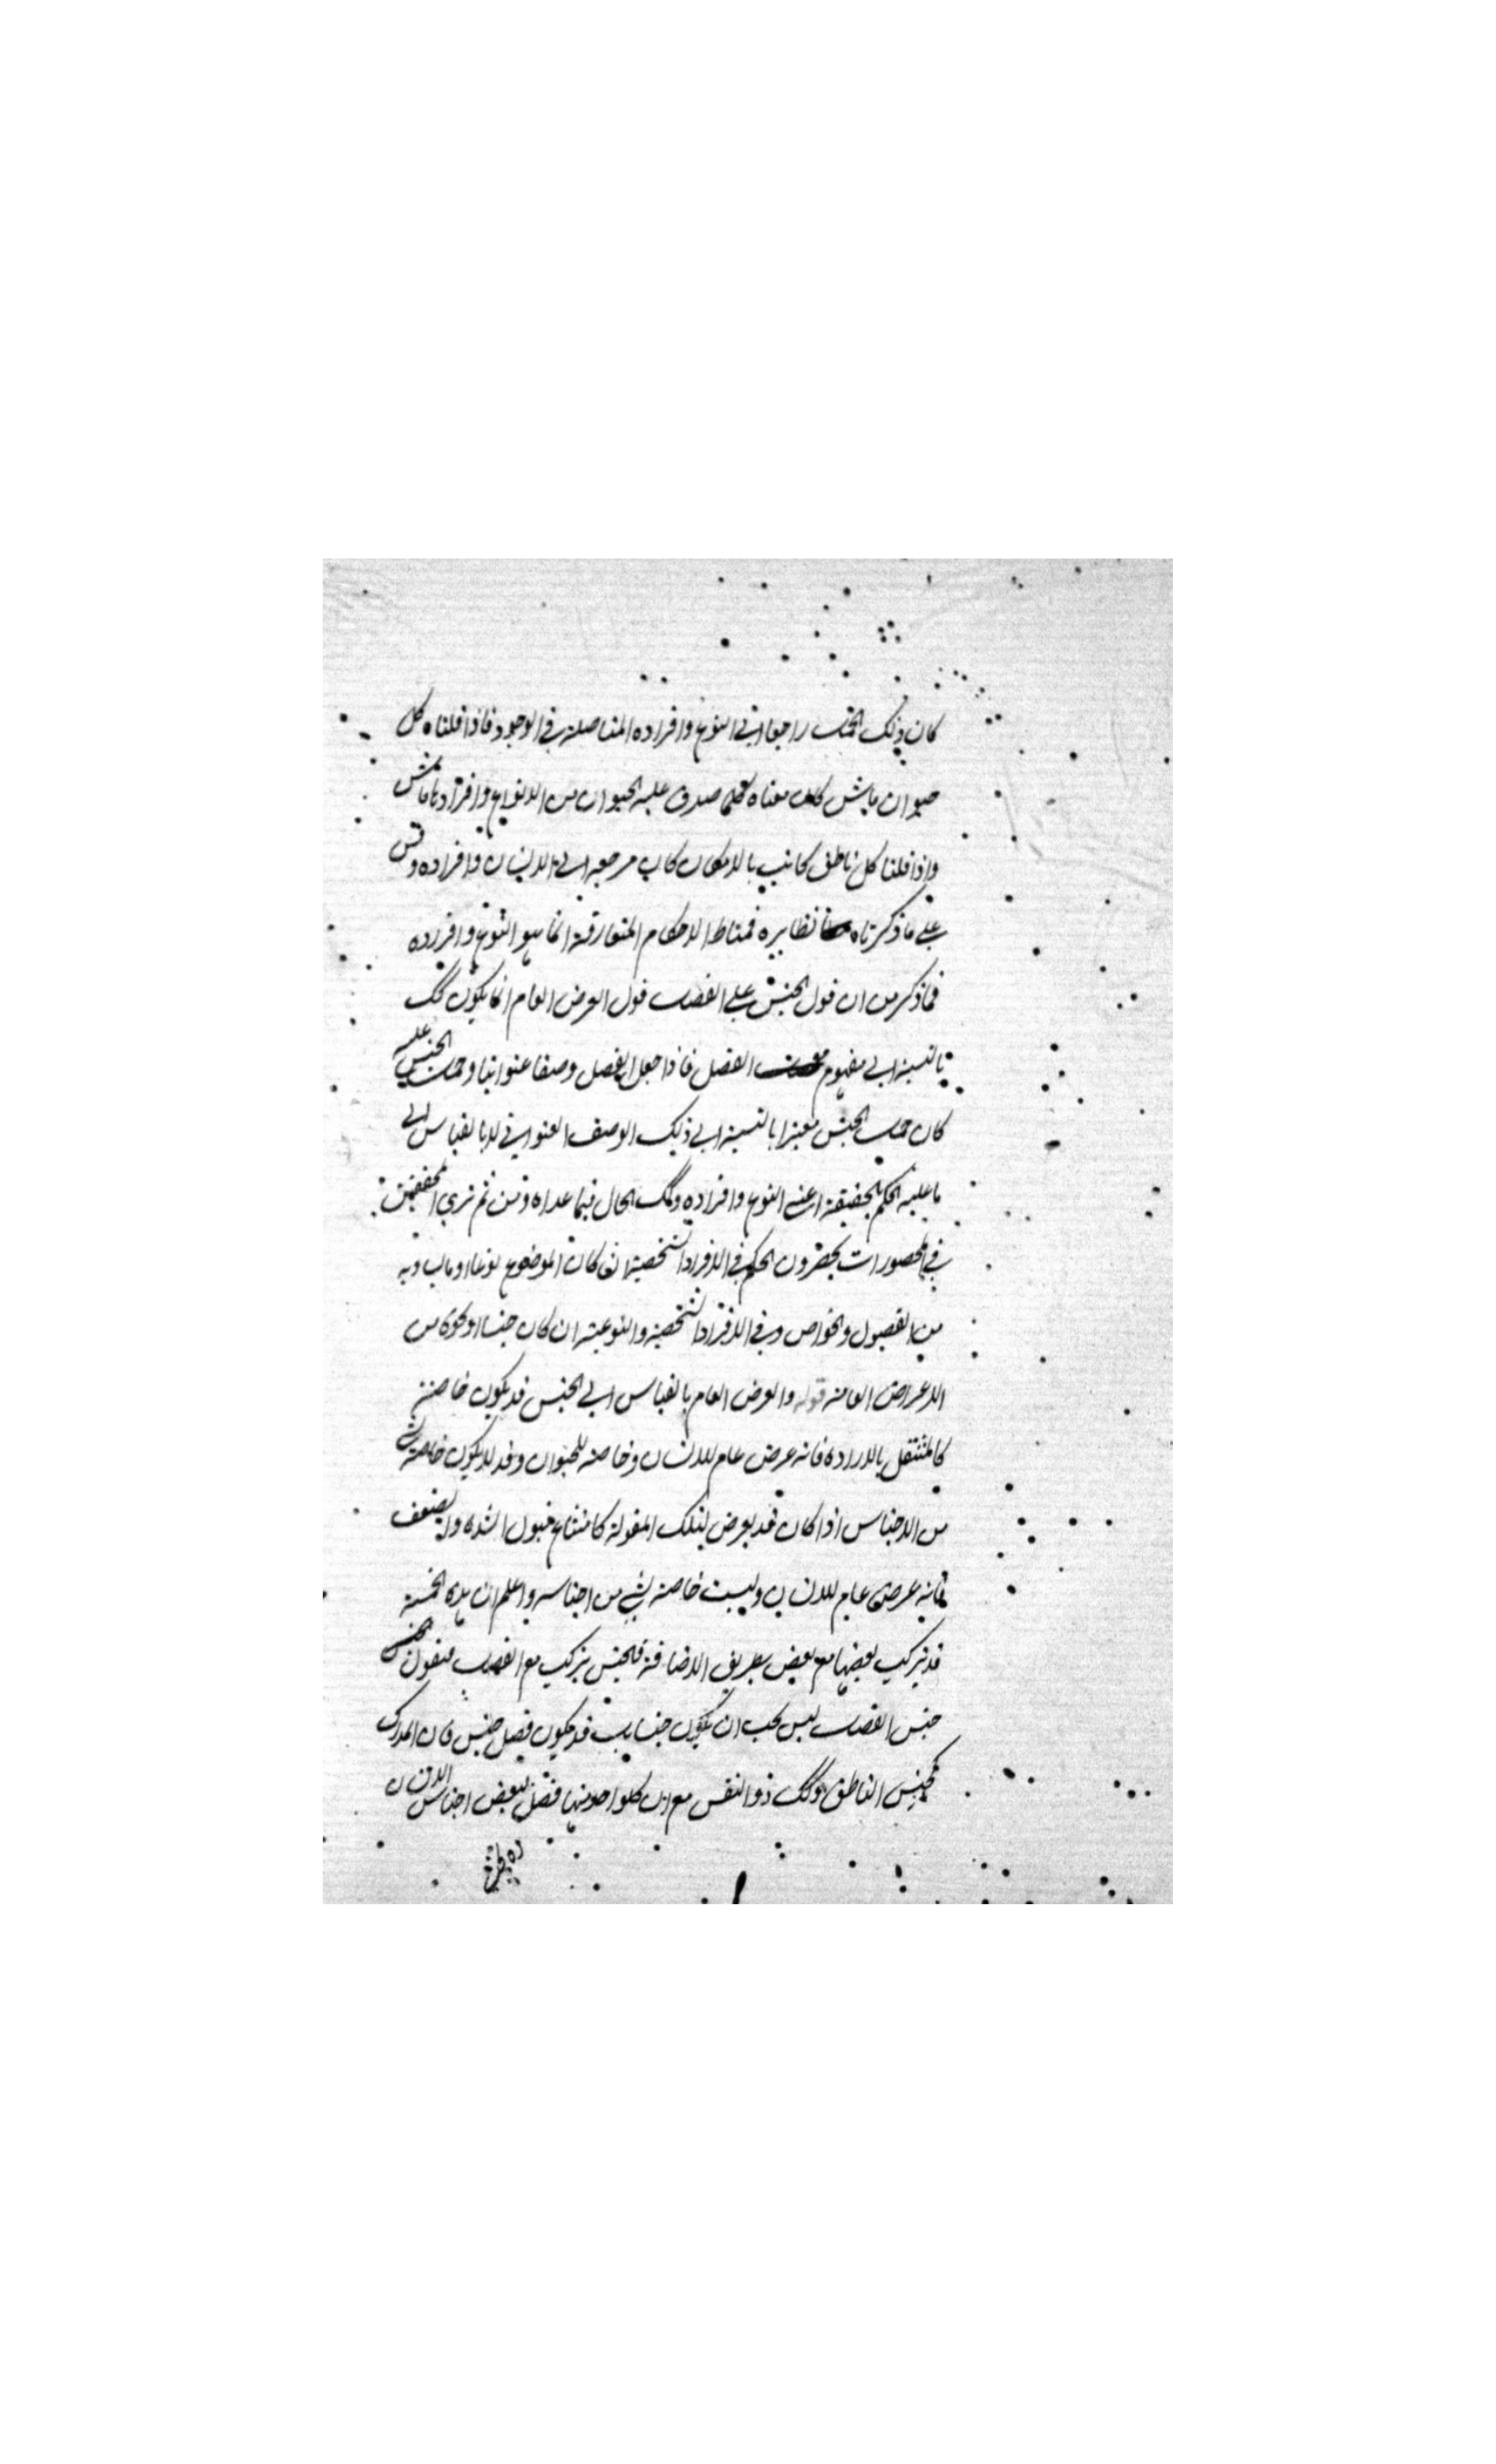 كان ذلك الحمل راجعا الى النوع وافراده المتاصلة في الوجود فاذا قلنا كل
حيوان ماش كان معناه كلما صدق عليه الحيوان من الانواع وافرادها ماش
واذا قلنا كل ناطق كاتب بالامكان كان مرجعه الى الانسان وافراده وقس
على ما ذكرناه نظايره فمناط الاحكام المتعارفة انما هو النوع وافراده
فما ذكر من ان قول الجنس على الفصل قول العرض العام انما يكون كك
بالنسبة الى مفهوم الفصل فاذا جعل الفصل وصفا عنوانيا وحمل الجنس عليه
كان حمل الجنس معتبرا بالنسبة الى ذلك الوصف العنواني لا بالقياس الى
ما عليه الحكم بالحقيقة اعني النوع وافراده وكك الحال فيما عداه ومن ثم ترى المحققين
في المحصورات يحصرون الحكم في الافراد الشخصية ان كان الموضوع نوعا او ما يساويه
من الفصول والخواص وفي الافراد الشخصية والنوعية ان كان جنسا او نحوه من
الاعراض العامة قوله والعرض العام بالقياس الى الجنس قد يكون خاصة
كالمتنقل بالارادة فانه عرض عام للانسان وخاصة للحيوان وقد لا يكون خاصة لشئ
من الاجناس اذا كان قد يعرض لتلك المقولة كامتناع قبول الشدة والضعف
فانه عرض عام للانسان وليست خاصة لشئ من اجناسه واعلم ان هذه الخمسة
قد تركب بعضها مع بعض بطريق الاضافة فالجنس يتركب مع الفصل فنقول
جنس الفصل ليس يجب ان يكون جنسا بل قد يكون فصل جنس فان المدرك
كجنس الناطق وكك ذو النفس مع ان كل واحد منها فصل لبعض اجناس الانسان